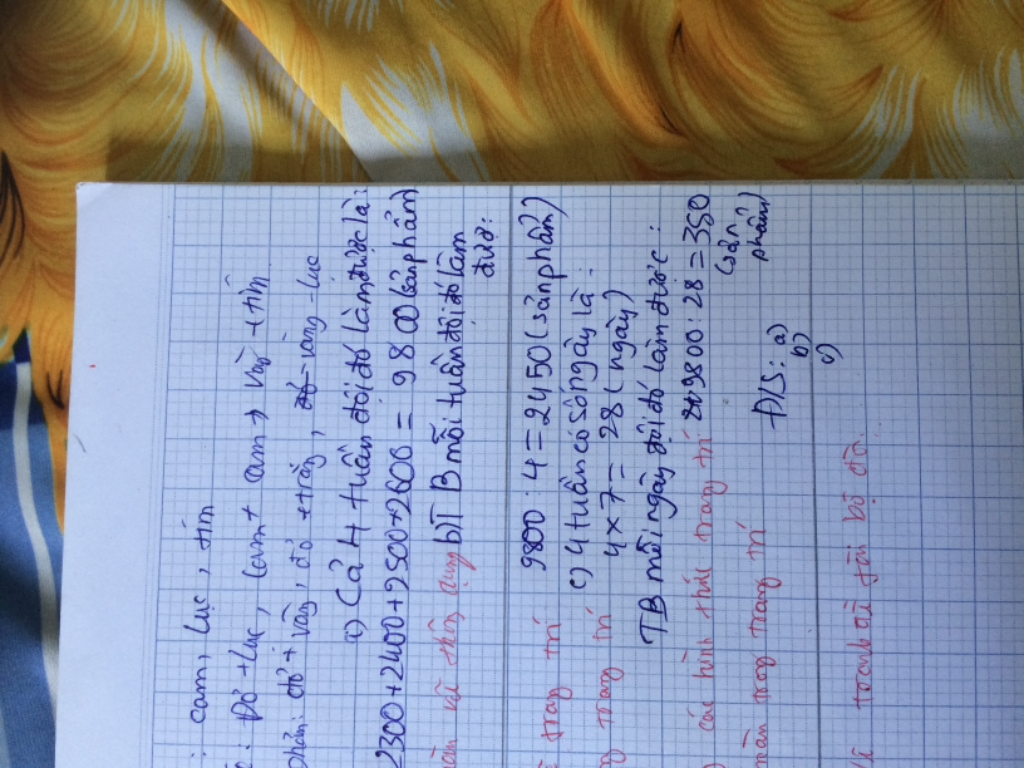 : cam, lục, tím
: Đỏ + Lục, Cam + cam + vàng + tím
phẩm: đỏ + vàng, đỏ + trắng, vàng - lục
a) Cả 4 tuần đội đó làm được là:
2300 + 2400 + 2500 + 2600 = 9800 (sản phẩm)
dụng b) TB mỗi tuần đội đó làm
đươ:
9800 : 4 = 2450 (sản phẩm)
trang trí c) 4 tuần có số ngày là:
trang trí 4 x 7 = 28 (ngày)
TB mỗi ngày đội đó làm được:
các hình thức trang trí 9800 : 28 = 350
(sản
phẩm)
trong trang trí Đ/S: a)
b)
c)
tranh đề tài bộ đội.